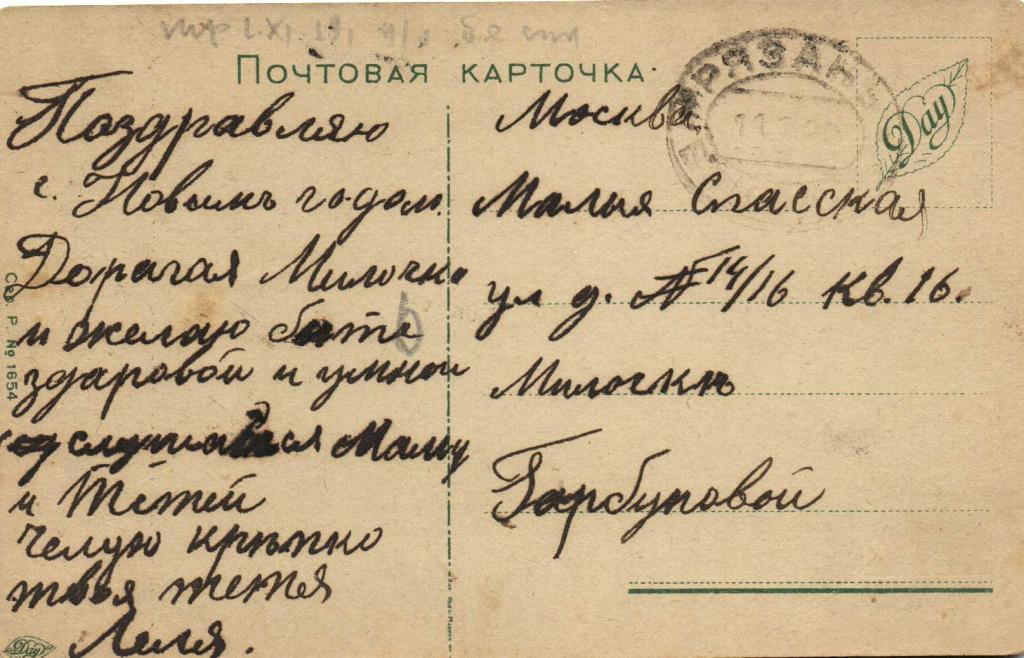 ПОЧТОВАЯ КАРТОЧКА
РЯЗАНЬ
Day
Поздравляю
с. Новымъ годом.
Дорагая Милочка
и желаю быть
здаровой и умной
слушайся Маму
и Тетей
Челую крѣпко
твоя тетя
Леля.
Москва
Малыя Спасская
ул д. № 14/16 кв. 16.
Милочкѣ
Гарбуновой
Сер. Р. № 1654
Day